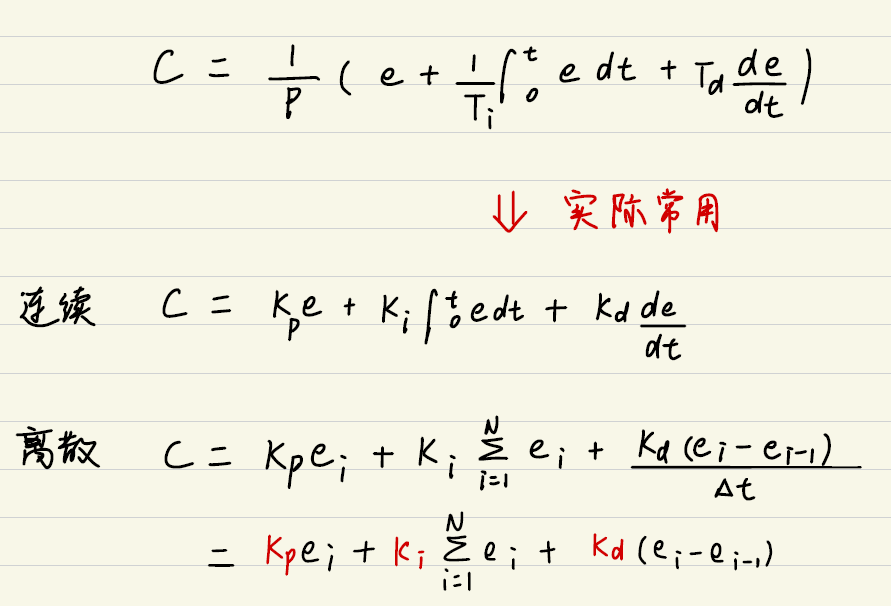 C = 1/P ( e + 1/Tᵢ ∫₀ᵗ e dt + T_d de/dt )
⇓ 实际常用
连续 C = K_p e + Kᵢ ∫₀ᵗ e dt + K_d de/dt
离散 C = K_p eᵢ + Kᵢ Σ_{i=1}^{N} eᵢ + K_d (eᵢ − eᵢ₋₁) / Δt
= K_p eᵢ + Kᵢ Σ_{i=1}^{N} eᵢ + K_d (eᵢ − eᵢ₋₁)